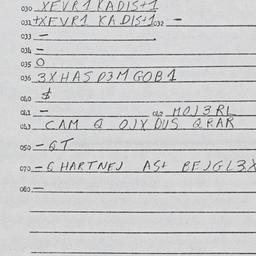 030 XFVR1 KADIS+1
031 +XFVR1 KADIS+1 032 –
033 –
034 –
035 O
036 3XHASD3MGOB1
040 $
041 – 042 MOJ3RL
043 CAM Q OJX DUS QRAR
050 – QT
070 – QHARTNFJ AS+ BFJGL3X
080 –